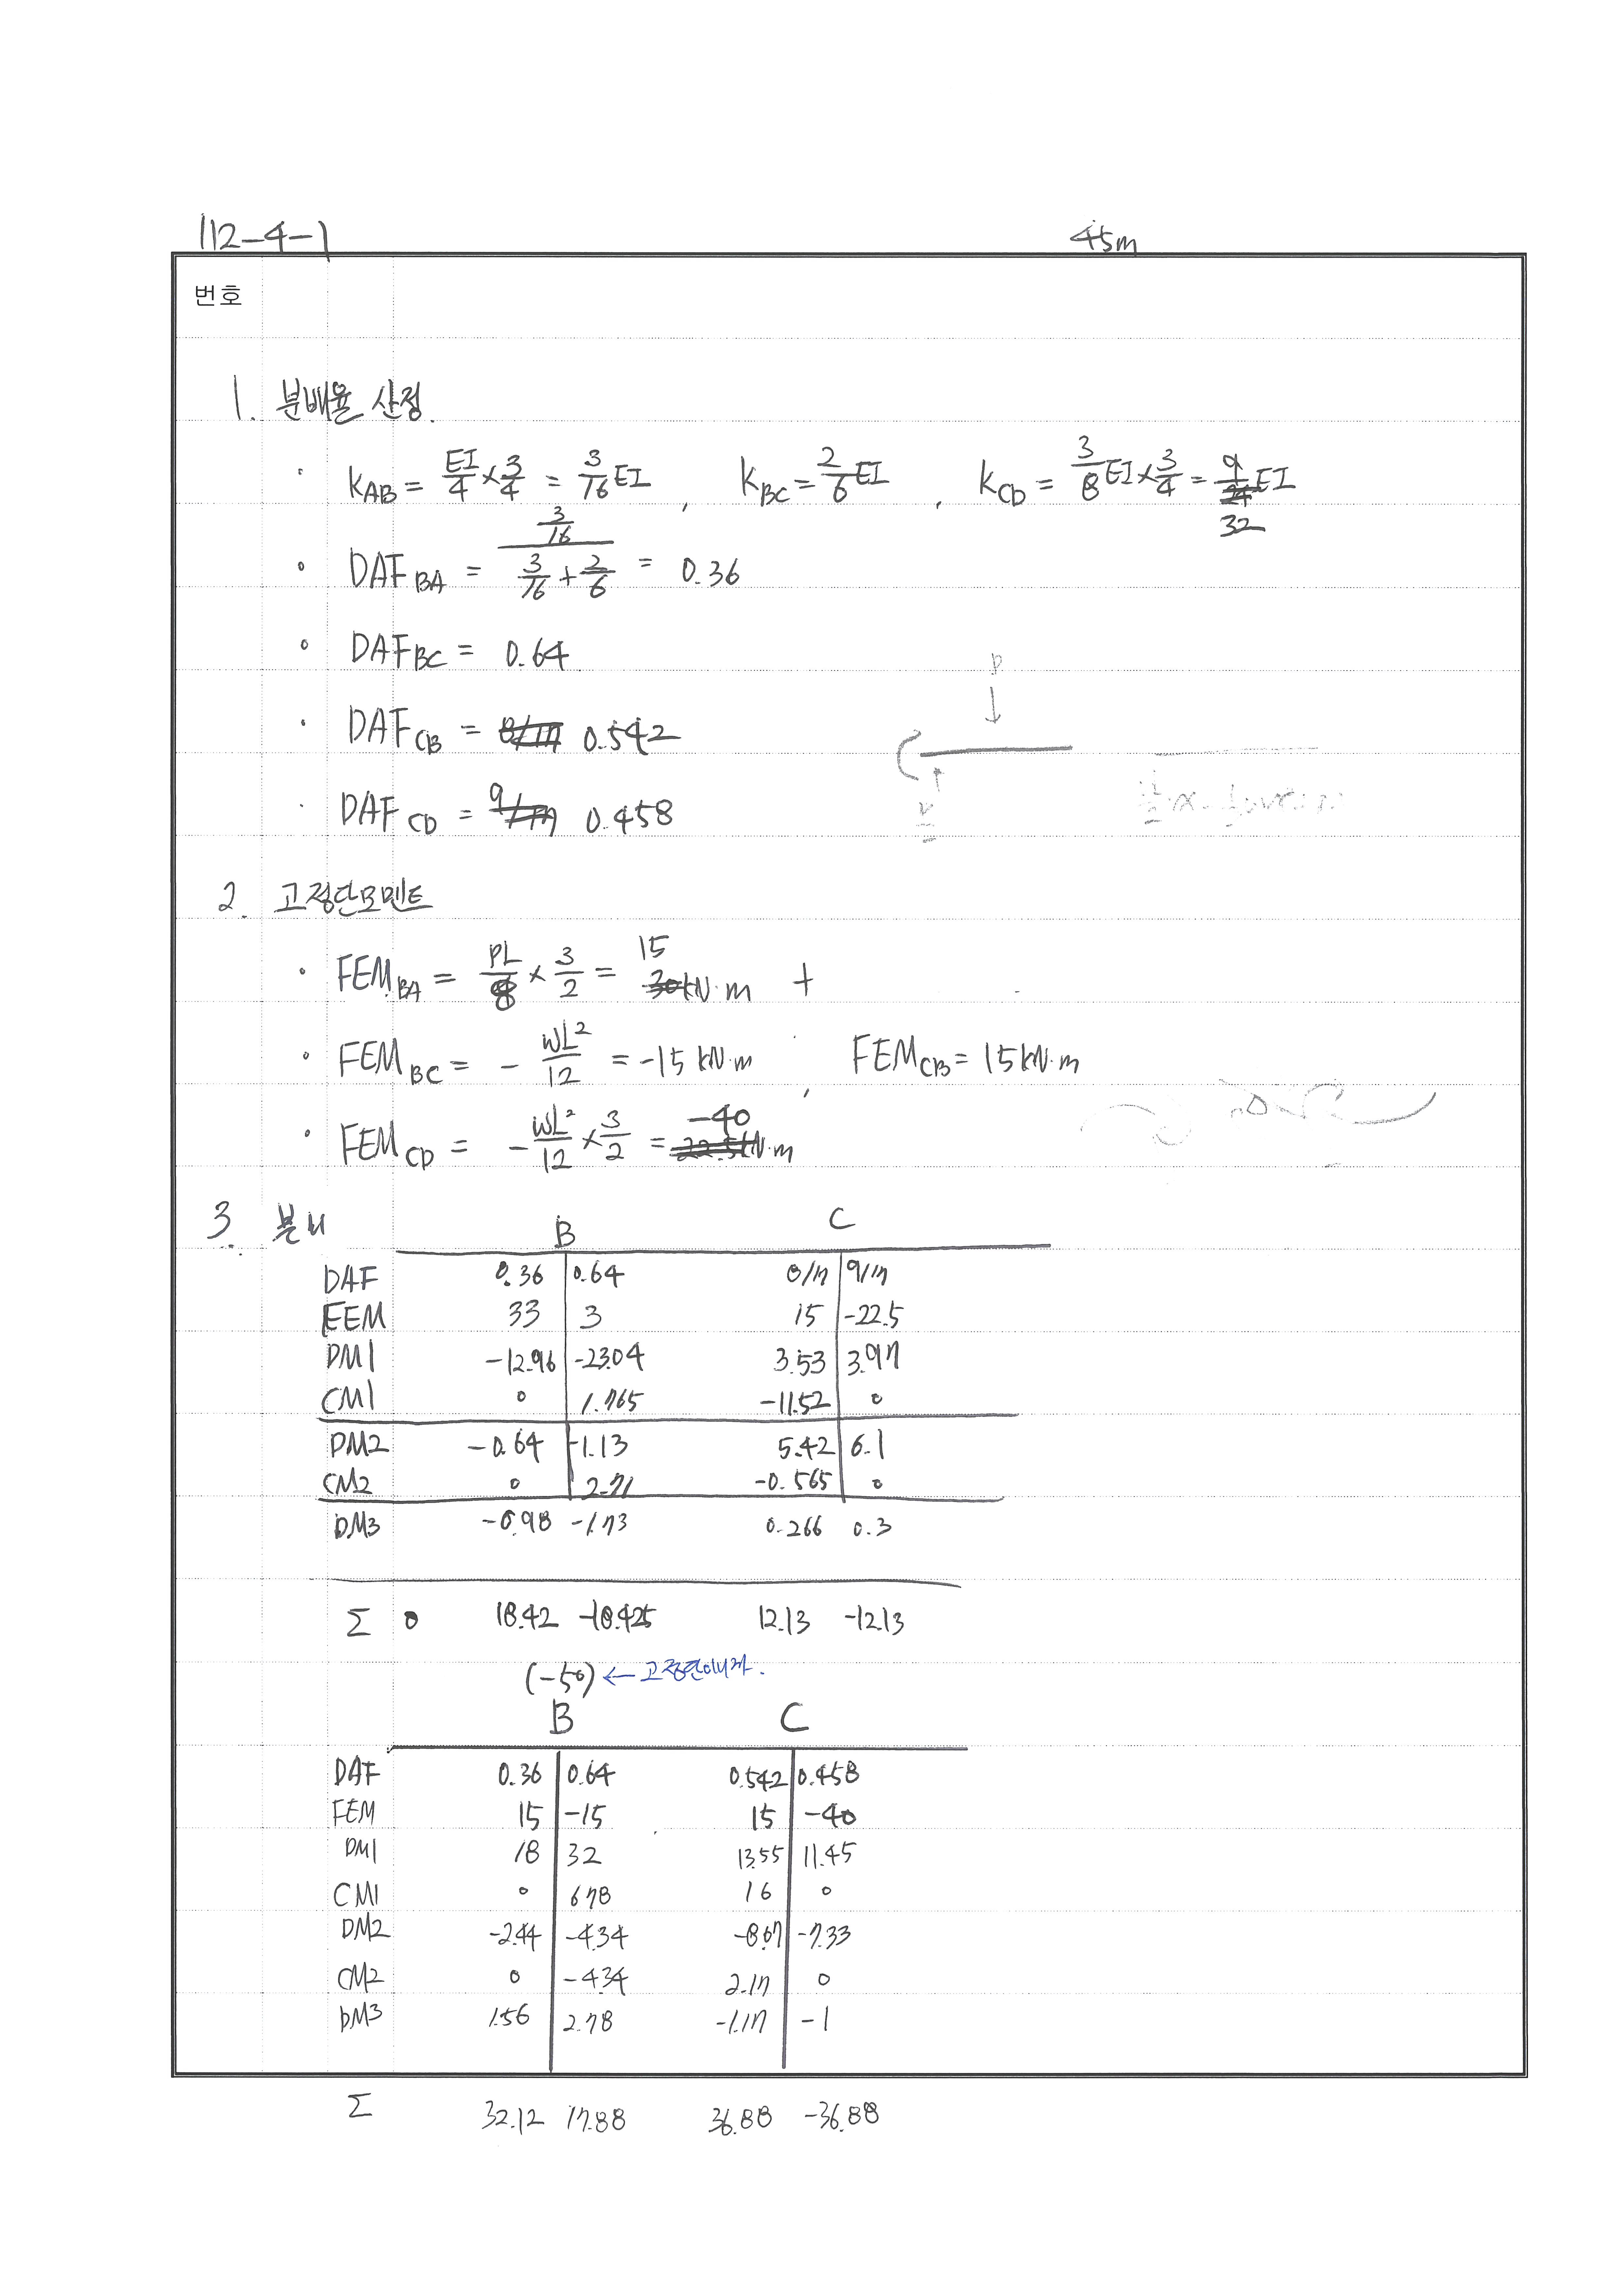 112-4-1 45m
번호
1. 분배율 산정.
· K_AB = EI/4 × 3/4 = 3/16 EI , K_BC = 2/6 EI , K_CD = 3/8 EI × 3/4 = 9/32 EI
∘ DAF_BA = (3/16)/(3/16 + 2/6) = 0.36
∘ DAF_BC = 0.64
P
· DAF_CB = 8/17 0.542
· DAF_CD = 9/17 0.458
2. 고정단모멘트
· FEM_BA = PL/8 × 3/2 = 15 30 kN·m +
· FEM_BC = - wL²/12 = -15 kN·m , FEM_CB = 15 kN·m
· FEM_CD = - wL²/12 × 3/2 = -40 22.5 kN·m
3. 분배
B C
DAF 0.36 0.64 8/17 9/17
FEM 33 3 15 -22.5
DM1 -12.96 -23.04 3.53 3.97
CM1 0 1.765 -11.52 0
DM2 -0.64 -1.13 5.42 6.1
CM2 0 2.71 -0.565 0
DM3 -0.98 -1.73 0.266 0.3
Σ 0 18.42 -18.425 12.13 -12.13
(-50) ← 고정단이니까.
B C
DAF 0.36 0.64 0.542 0.458
FEM 15 -15 15 -40
DM1 18 32 13.55 11.45
CM1 0 6.78 16 0
DM2 -2.44 -4.34 -8.67 -7.33
CM2 0 -4.34 2.17 0
DM3 1.56 2.78 -1.17 -1
Σ 32.12 17.88 36.88 -36.88